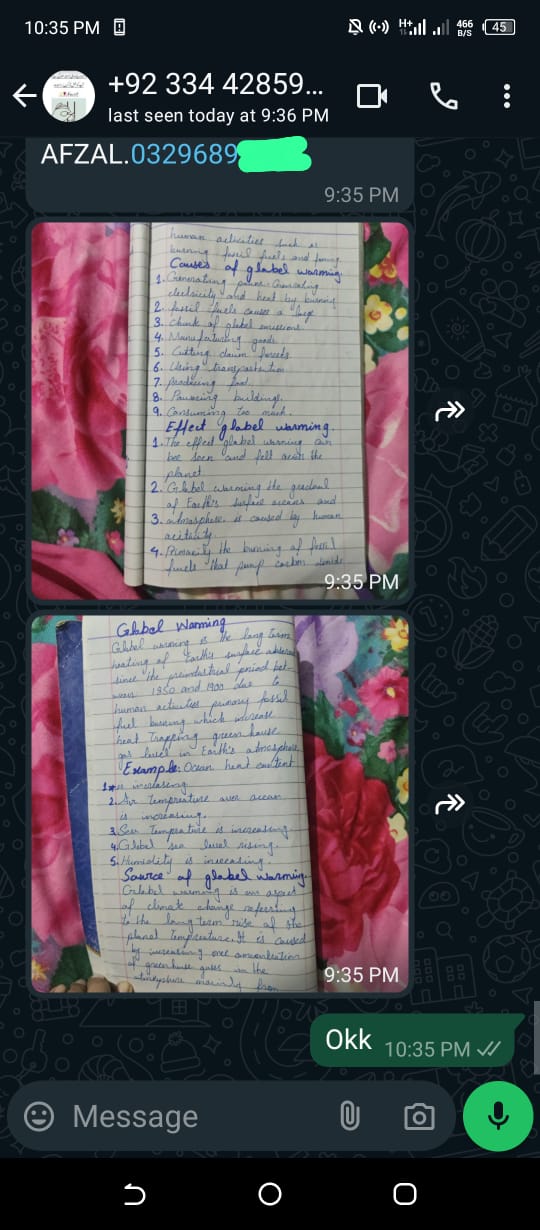 10:35 PM
H+
466 B/S
45
+92 334 42859...
last seen today at 9:36 PM
AFZAL.0329689
9:35 PM
human activities such as
burning fossil fuels and
Causes of glabel warming.
1. Generating power: Generating
electricity and heat by burning
2. fossil fuels causes a large
3. chunk of glabel emissions
4. Manufaturing goods.
5. Cutting dawm forests.
6. Using transportation
7. producing food.
8. buildings.
9. Consuming too much.
Effect glabel warming.
1. The effect glabel warming can
bee seen and felt across the
planet
2. Glabel warming the gradual
of Earth's surface oceans and
3. atmosphere is caused by human
4. the burning of fossil
fuels that pump carbon
9:35 PM
Glabel Warming
Glabel warming is the long term
heating of Earth's surface
since the preindustrial period bet-
ween 1850 and 1900 due to
human activities primary fossil
fuel burning which increase
heat trapping green hause
gas levels in Earth's atmosphere
Example: Ocean heat content
1. is increasing.
2. Air Tempreature over ocean
is increasing.
3. Sea Tempreature is increasing
4. Glabel sea level rising.
5. Humidity is increasing.
Source of glabel warming.
Glabel warming is an aspect
of climate change referring
to the long term rise of the
planet Tempreature. It is caused
by increasing
of greenhause gases in the
mainly from
9:35 PM
Okk
10:35 PM
Message